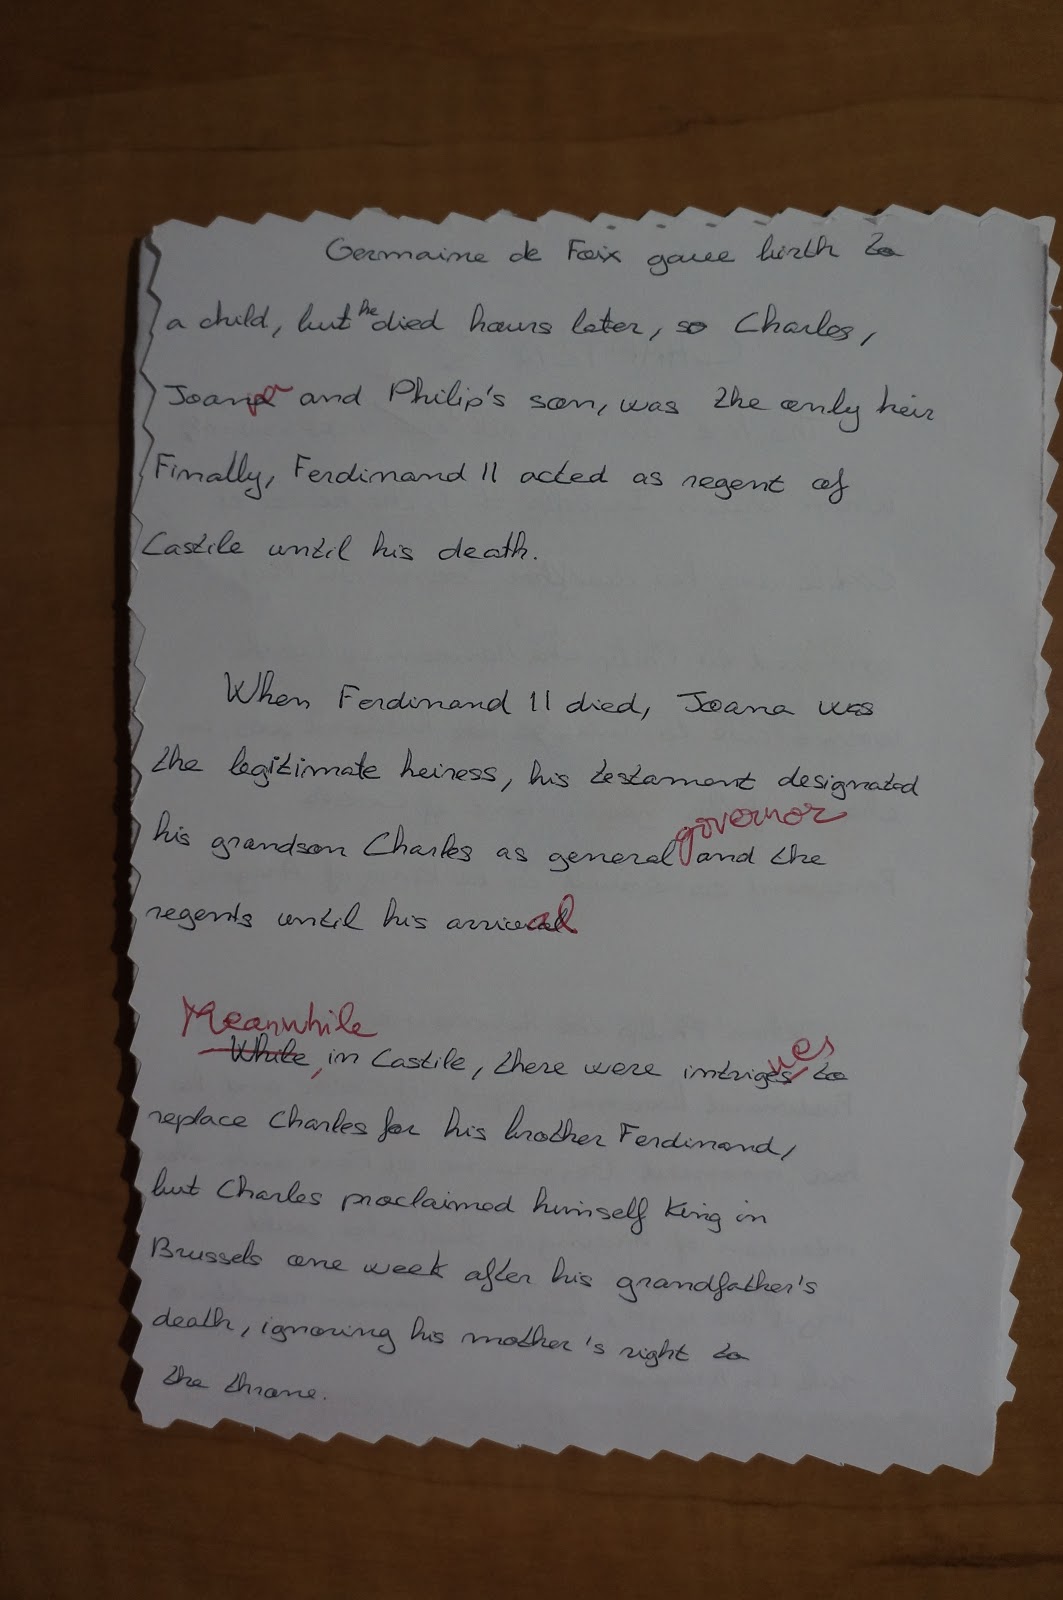 Germaine de Foix gave birth to
a child, but he died hours later, so Charles,
Joana and Philip's son, was the only heir
Finally, Ferdinand II acted as regent of
Castile until his death.
When Ferdinand II died, Joana was
the legitimate heiress, his testament designated
governor
his grandson Charles as general and the
regents until his arrival
Meanwhile
While, in Castile, there were intrigues to
replace Charles for his brother Ferdinand,
but Charles proclaimed himself King in
Brussels one week after his grandfather's
death, ignoring his mother's right to
the throne.